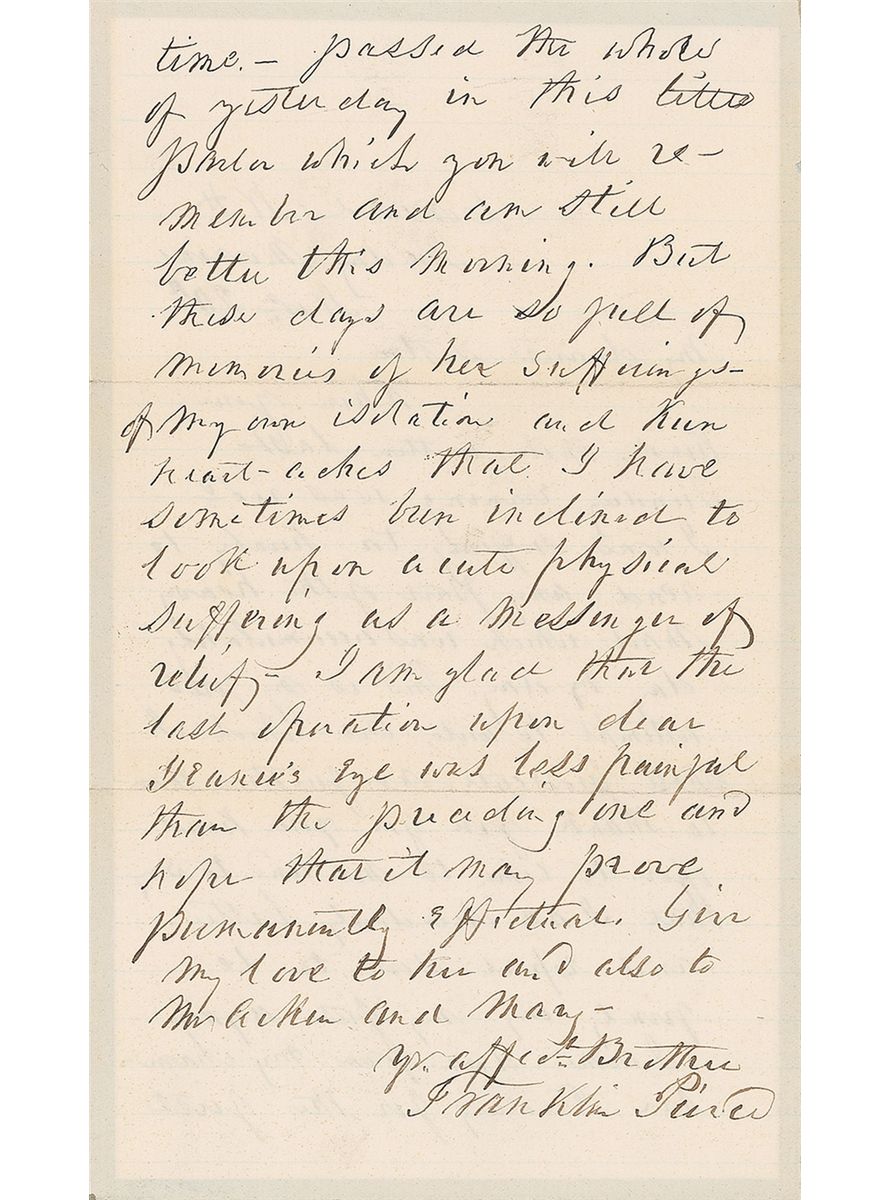 time. – passed the whole
of yesterday in this little
parlor which you will re-
member and am still
better this morning. But
these days are so full of
memories of her sufferings –
of my own isolation and keen
heart-aches that I have
sometimes been inclined to
look upon acute physical
suffering as a messenger of
relief – I am glad that the
last operation upon dear
Jeanie's Eye was less painful
than the preceding one and
hope that it may prove
permanently Effectual. Give
my love to her and also to
Mr Aiken and Mary –
yr. affect. Brother
Franklin Pierce